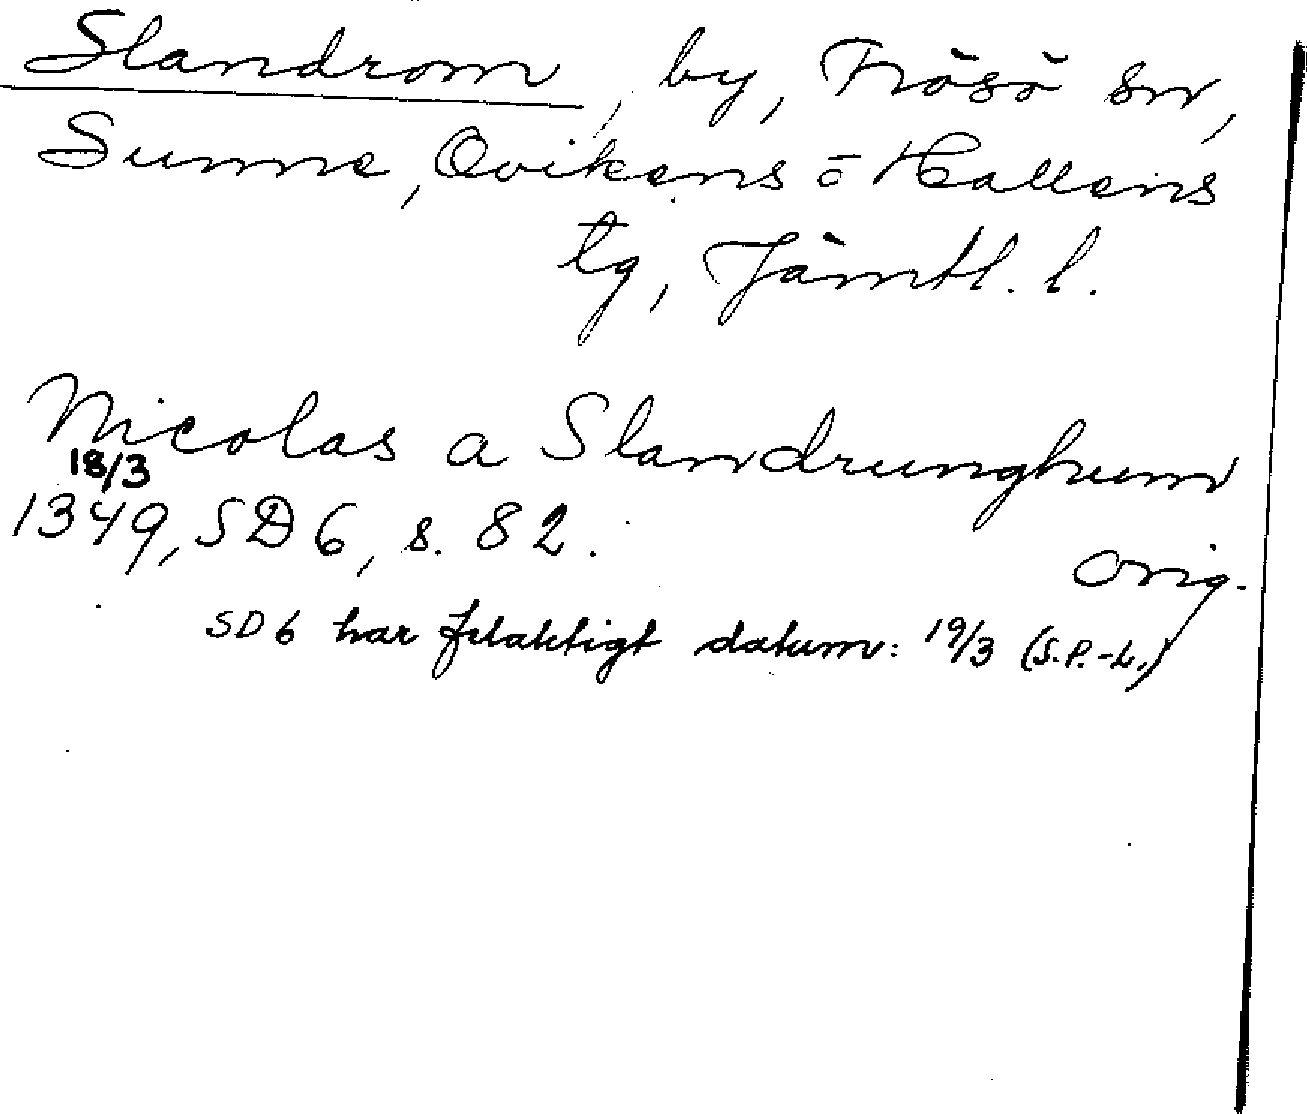 Slandrom, by, Frösö sn,
Sunne, Ovikens o Hallens
tg, Jämtl. l.
Nicolas a Slandrunghum
18/3
1349, SD 6, s. 82.
orig.
SD 6 har felaktigt datum: 19/3 (S.P.-L.)